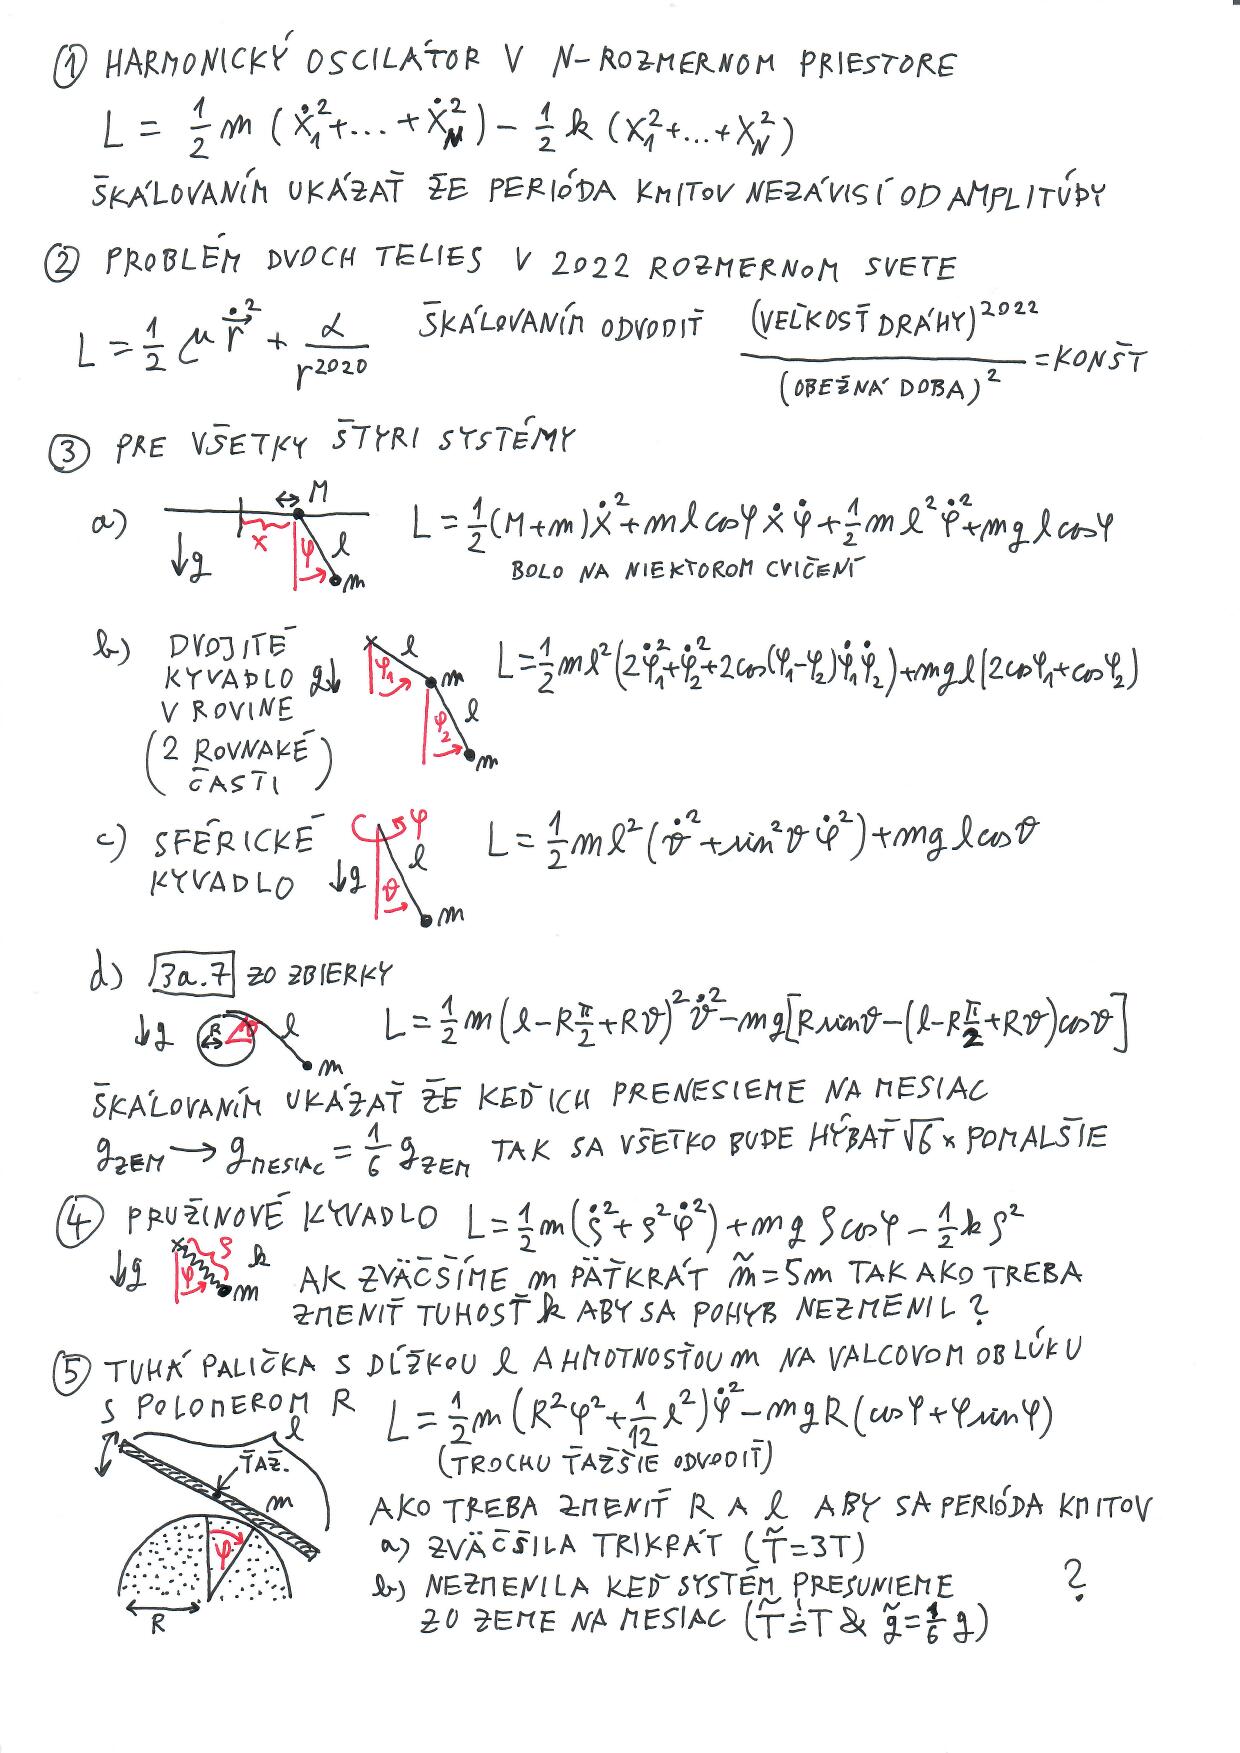 ① HARMONICKÝ OSCILÁTOR V N-ROZMERNOM PRIESTORE
L = 1/2 m (ẋ₁²+...+ẋ_N²) - 1/2 k (x₁²+...+x_N²)
ŠKÁLOVANÍM UKÁZAŤ ŽE PERIÓDA KMITOV NEZÁVISÍ OD AMPLITÚDY
② PROBLÉM DVOCH TELIES V 2022 ROZMERNOM SVETE
L = 1/2 μ ṙ⃗² + α/r²⁰²⁰ ŠKÁLOVANÍM ODVODIŤ (VEĽKOSŤ DRÁHY)²⁰²² / (OBEŽNÁ DOBA)² = KONŠT
③ PRE VŠETKY ŠTYRI SYSTÉMY
a) M x φ l m ↓g L = 1/2 (M+m)ẋ² + m l cosφ ẋ φ̇ + 1/2 m l² φ̇² + m g l cosφ
BOLO NA NIEKTOROM CVIČENÍ
b) DVOJITÉ KYVADLO V ROVINE g↓ φ₁ l m φ₂ l m L = 1/2 m l² (2φ̇₁² + φ̇₂² + 2cos(φ₁-φ₂)φ̇₁φ̇₂) + m g l (2cosφ₁ + cosφ₂)
(2 ROVNAKÉ ČASTI)
c) SFÉRICKÉ KYVADLO ↓g φ l ϑ m L = 1/2 m l² (ϑ̇² + sin²ϑ φ̇²) + m g l cosϑ
d) 3a.7 ZO ZBIERKY
↓g R ϑ l m L = 1/2 m (l - R π/2 + Rϑ)² ϑ̇² - m g [R sinϑ - (l - R π/2 + Rϑ) cosϑ]
ŠKÁLOVANÍM UKÁZAŤ ŽE KEĎ ICH PRENESIEME NA MESIAC
g_ZEM → g_MESIAC = 1/6 g_ZEM TAK SA VŠETKO BUDE HÝBAŤ √6 × POMALŠIE
④ PRUŽINOVÉ KYVADLO L = 1/2 m (ρ̇² + ρ²φ̇²) + m g ρ cosφ - 1/2 k ρ²
↓g φ ρ k m AK ZVÄČŠÍME m PÄŤKRÁT m̃ = 5m TAK AKO TREBA
ZMENIŤ TUHOSŤ k ABY SA POHYB NEZMENIL ?
⑤ TUHÁ PALIČKA S DĹŽKOU l A HMOTNOSŤOU m NA VALCOVOM OBLÚKU
S POLOMEROM R L = 1/2 m (R²φ² + 1/12 l²) φ̇² - m g R (cosφ + φ sinφ)
(TROCHU ŤAŽŠIE ODVODIŤ)
l ŤAŽ. m φ R
AKO TREBA ZMENIŤ R A l ABY SA PERIÓDA KMITOV
a) ZVÄČŠILA TRIKRÁT (T̃ = 3T)
b) NEZMENILA KEĎ SYSTÉM PRESUNIEME ?
ZO ZEME NA MESIAC (T̃ = T & g̃ = 1/6 g)